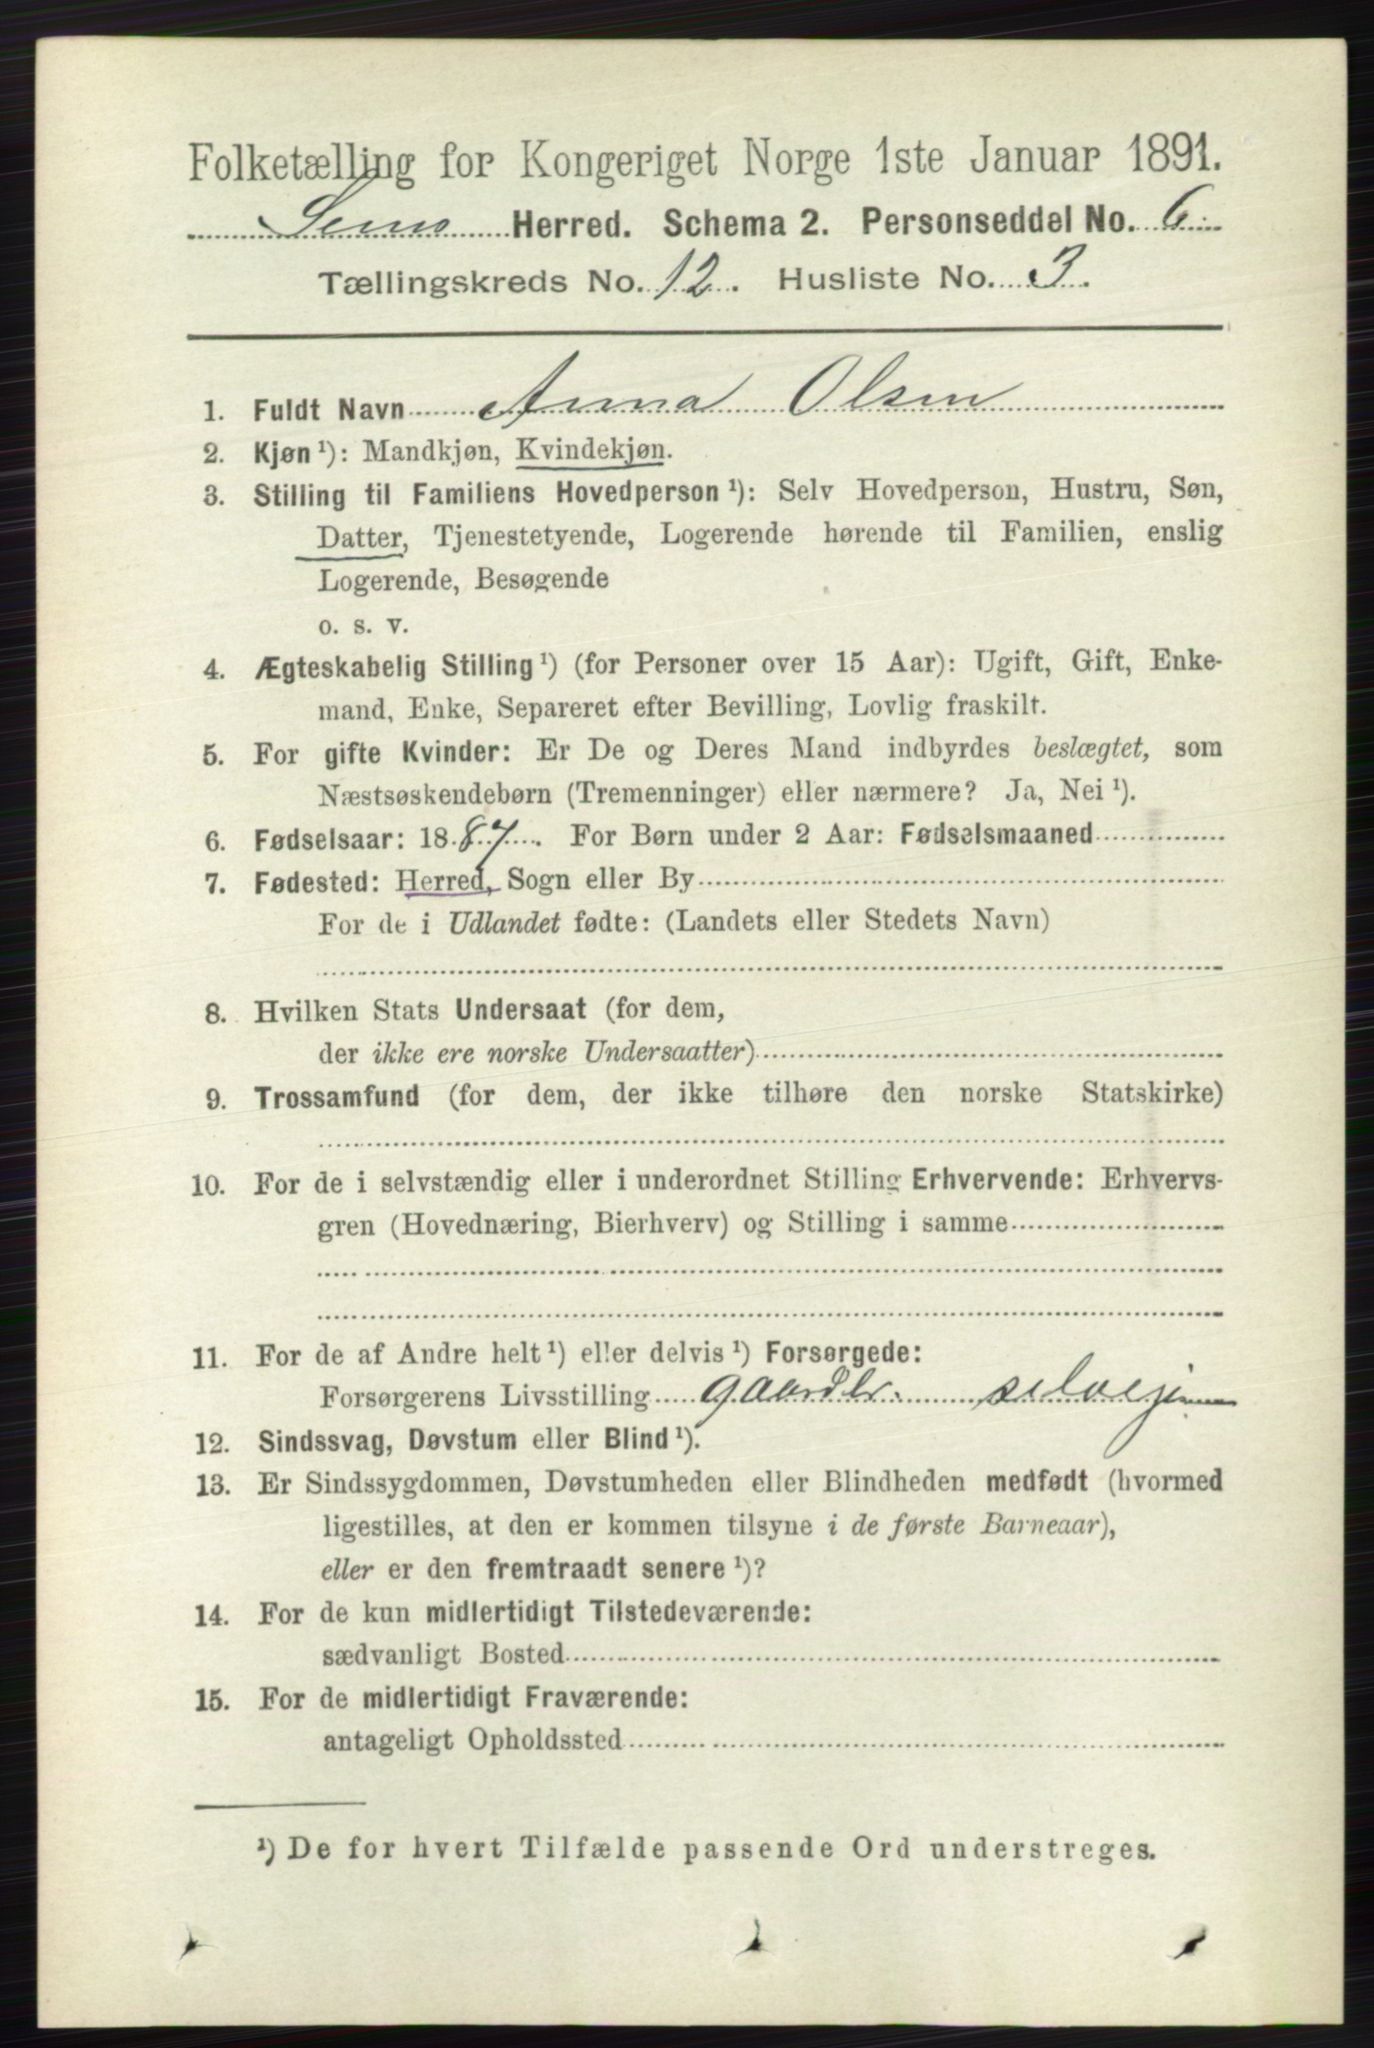 Folketælling for Kongeriget Norge 1ste Januar 1891.
Sems Herred. Schema 2. Personseddel No. 6
Tællingskreds No. 12. Husliste No. 3.
1. Fuldt Navn Anna Olsen
2. Kjøn ¹): Mandkjøn, Kvindekjøn.
3. Stilling til Familiens Hovedperson ¹): Selv Hovedperson, Hustru, Søn,
Datter, Tjenestetyende, Logerende hørende til Familien, enslig
Logerende, Besøgende
o. s. v.
4. Ægteskabelig Stilling ¹) (for Personer over 15 Aar): Ugift, Gift, Enke-
mand, Enke, Separeret efter Bevilling, Lovlig fraskilt.
5. For gifte Kvinder: Er De og Deres Mand indbyrdes beslægtet, som
Næstsøskendebørn (Tremenninger) eller nærmere? Ja, Nei ¹).
6. Fødselsaar: 1887. For Børn under 2 Aar: Fødselsmaaned
7. Fødested: Herred, Sogn eller By
For de i Udlandet fødte: (Landets eller Stedets Navn)
8. Hvilken Stats Undersaat (for dem,
der ikke ere norske Undersaatter)
9. Trossamfund (for dem, der ikke tilhøre den norske Statskirke)
10. For de i selvstændig eller i underordnet Stilling Erhvervende: Erhvervs-
gren (Hovednæring, Bierhverv) og Stilling i samme
11. For de af Andre helt ¹) eller delvis ¹) Forsørgede:
Forsørgerens Livsstilling gaardbr. selvejer
12. Sindssvag, Døvstum eller Blind ¹).
13. Er Sindssygdommen, Døvstumheden eller Blindheden medfødt (hvormed
ligestilles, at den er kommen tilsyne i de første Barneaar),
eller er den fremtraadt senere ¹)?
14. For de kun midlertidigt Tilstedeværende:
sædvanligt Bosted
15. For de midlertidigt Fraværende:
antageligt Opholdssted
¹) De for hvert Tilfælde passende Ord understreges.